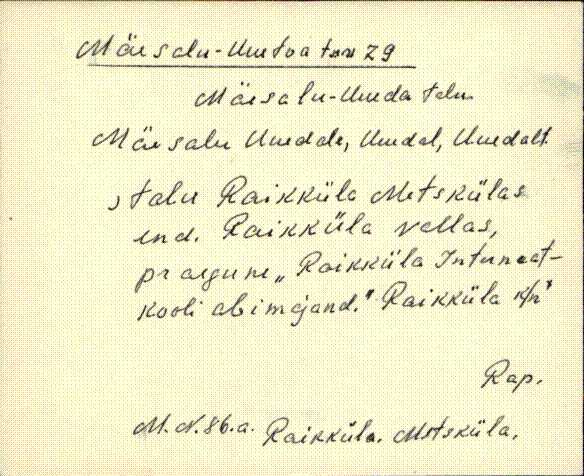 Mäesalu-Uuetoa talu Z9
Mäesalu-Uueda talu
Mäesalu Uuedale, Uuedal, Uuedalt
, talu Raikküla Metskülas
end. Raikküla vallas,
praegune „Raikküla Internaat-
kooli abimajand." Raikküla k/n
Rap.
M.N.86.a. Raikküla. Metsküla.